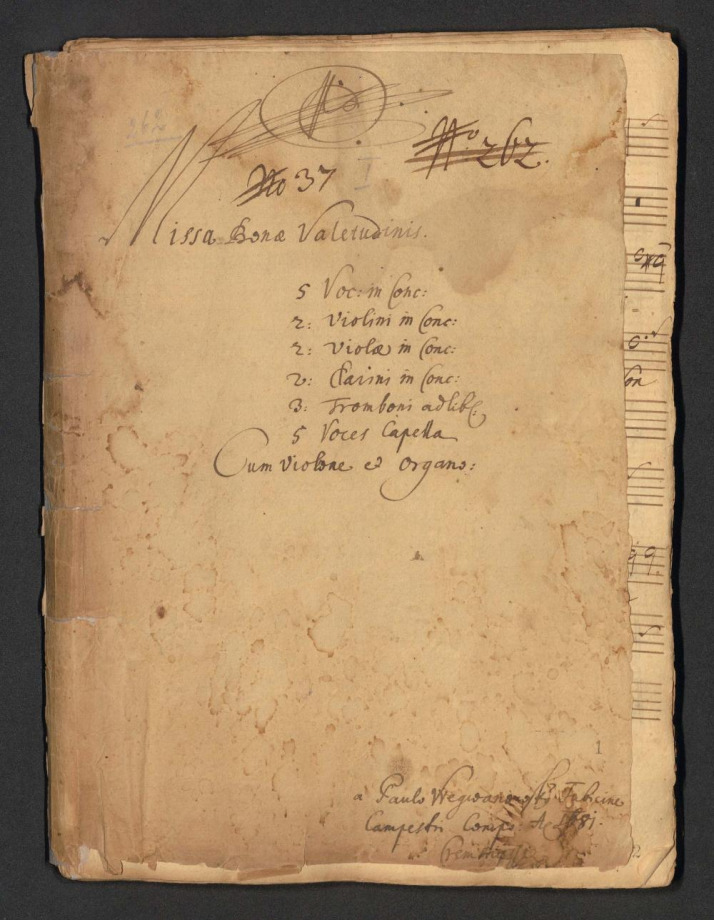 262
No 37 I
No. 262.
Missa Bonæ Valetudinis.
5 Voc: in Conc:
2: Violini in Conc:
2: Violæ in Conc:
2: Clarini in Conc:
3: Tromboni ad lib:
5 Voces Capella
Cum Violone et Organo:
1
a Paulo Tubicine
Campestri Comp: Aº 1681.
2